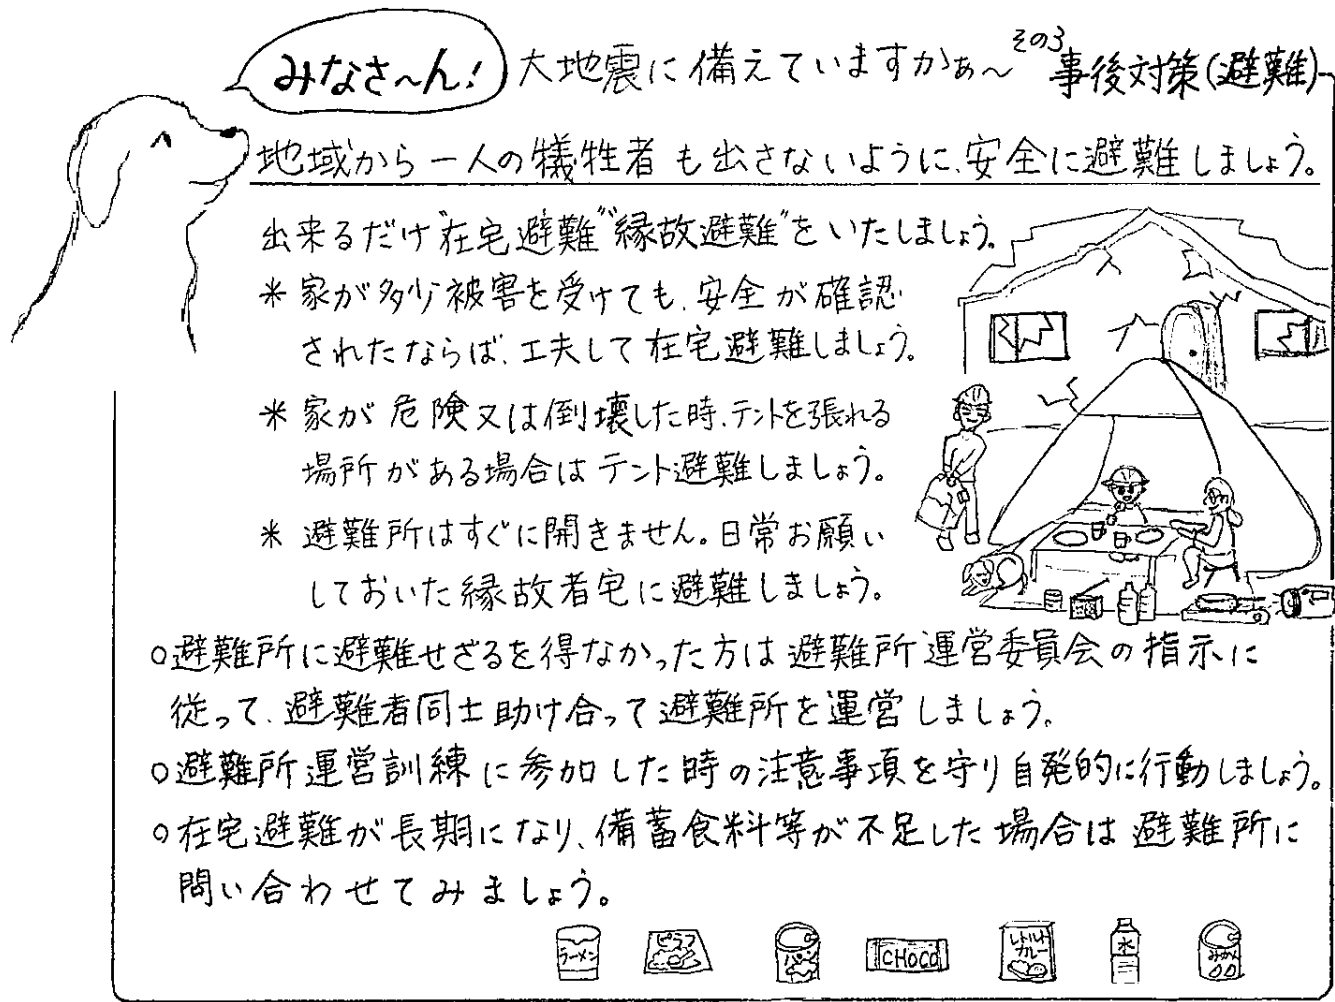 みなさ～ん! 大地震に備えていますかぁ～ その3 事後対策(避難)
地域から一人の犠牲者も出さないように、安全に避難しましょう。
出来るだけ"在宅避難""縁故避難"をいたしましょう。
* 家が多少被害を受けても、安全が確認
されたならば、工夫して在宅避難しましょう。
* 家が危険又は倒壊した時、テントを張れる
場所がある場合はテント避難しましょう。
* 避難所はすぐに開きません。日常お願い
しておいた縁故者宅に避難しましょう。
○避難所に避難せざるを得なかった方は避難所運営委員会の指示に
従って、避難者同士助け合って避難所を運営しましょう。
○避難所運営訓練に参加した時の注意事項を守り自発的に行動しましょう。
○在宅避難が長期になり、備蓄食料等が不足した場合は避難所に
問い合わせてみましょう。
ラーメン ピラフ パン CHOCO レトルトカレー 水 みかん